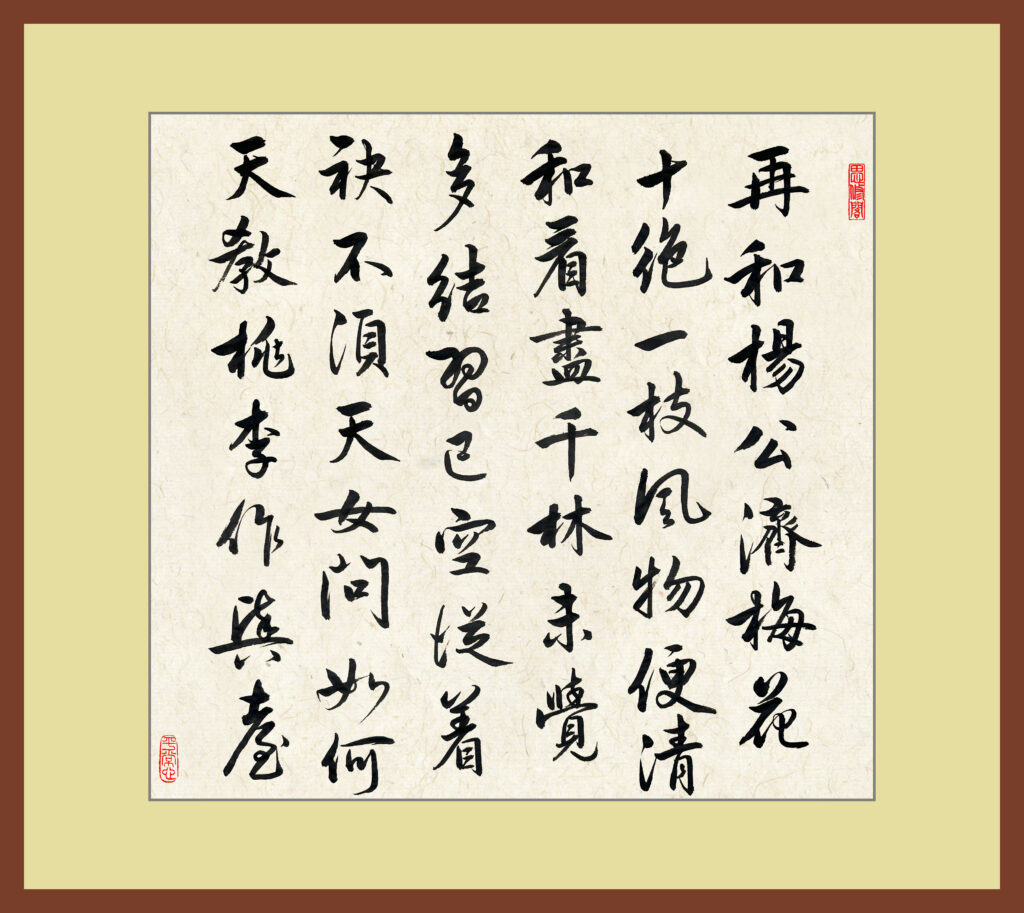 思修閣
再和楊公濟梅花
十絶一枝風物便清
和看盡千林未覺
多結習已空從着
袂不須天女問如何
天教桃李作輿臺
平常心